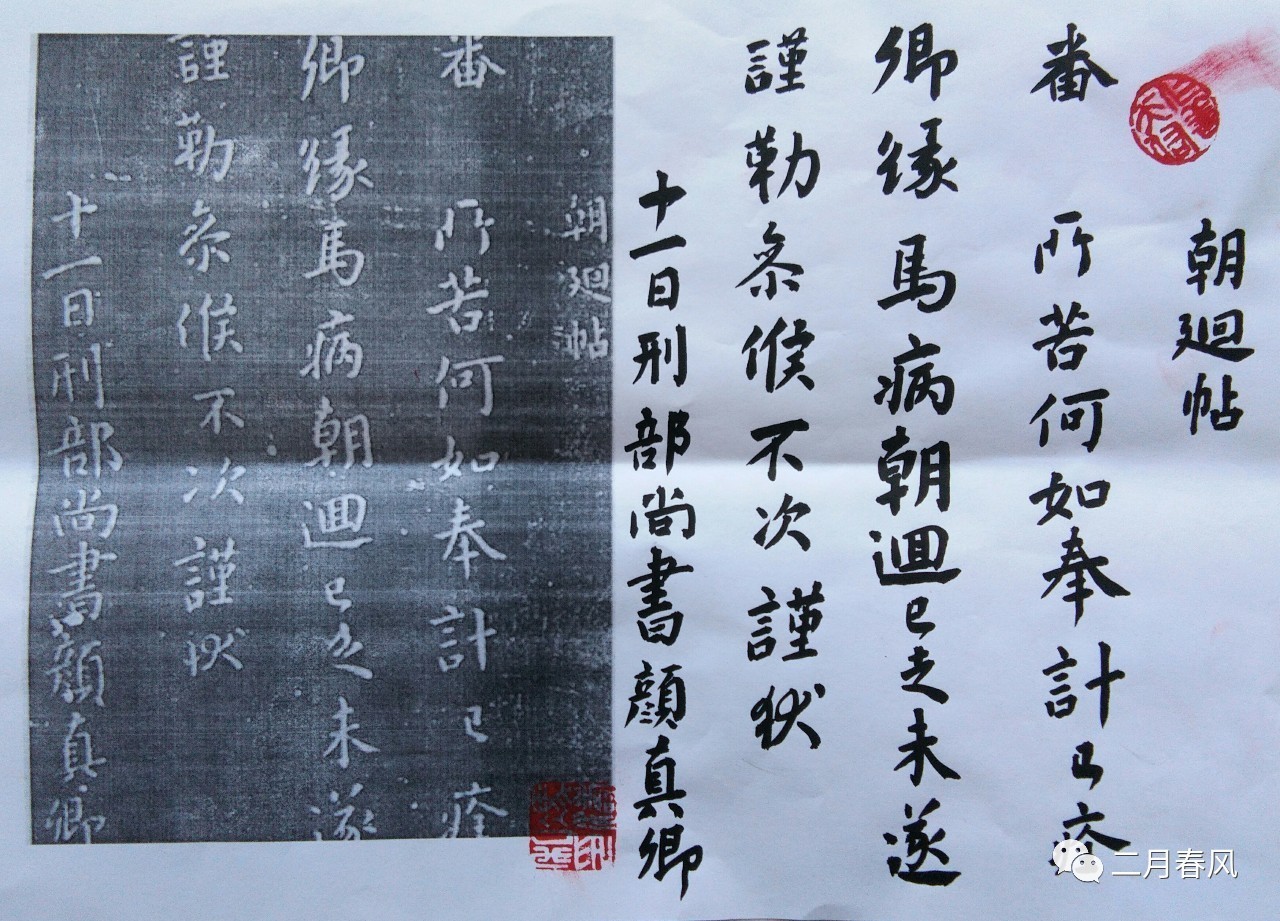 朝廻帖
番 所苦何如奉計已痊
卿缘馬病朝迴已乏未遂
謹勒叅候不次謹狀
十一日刑部尚書顔真卿
朝廻帖
番 所苦何如奉計已痊
卿缘馬病朝迴已乏未遂
謹勒叅候不次謹狀
十一日刑部尚書顔真卿
二月春风